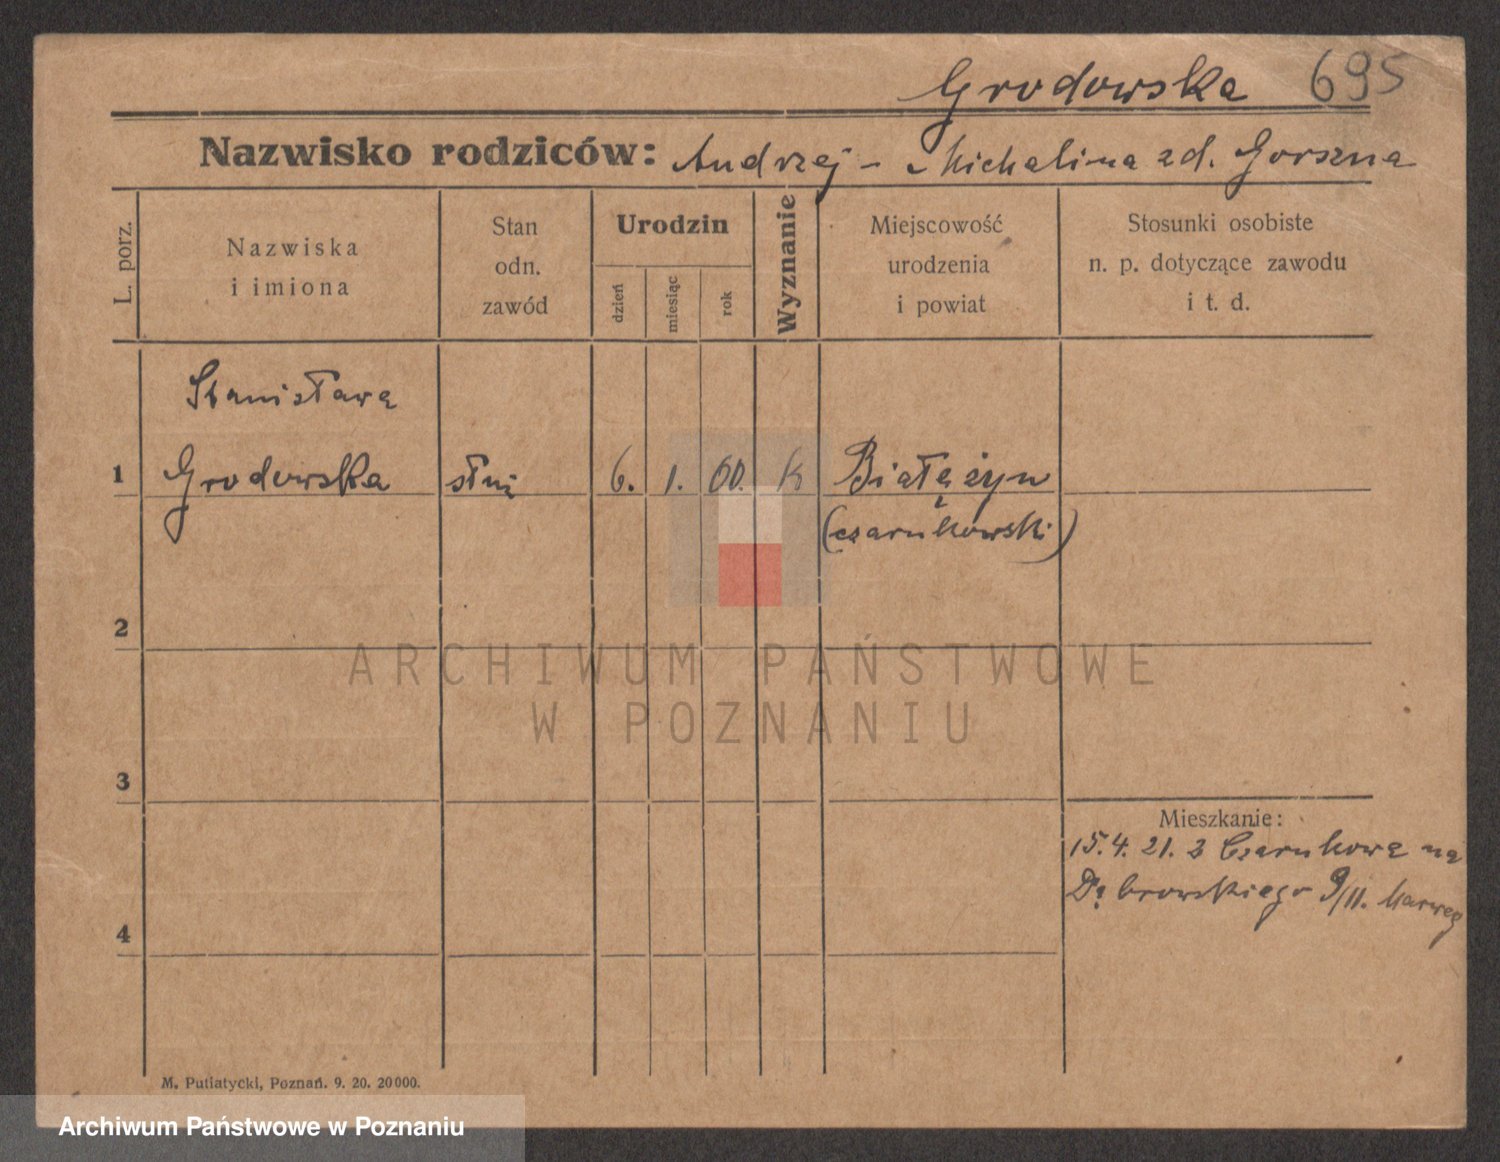 Grodowska 695
Nazwisko rodziców: Andrzej – Michalina zd. Gorszna
L. porz.
Nazwiska
i imiona
Stan
odn.
zawód
Urodzin
dzień
miesiąc
rok
Wyznanie
Miejscowość
urodzenia
i powiat
Stosunki osobiste
n. p. dotyczące zawodu
i t. d.
Stanisława
1 Grodowska służ 6. 1. 00. k Białężyn
(czarnkowski)
2
ARCHIWUM PAŃSTWOWE
W POZNANIU
3
Mieszkanie:
15.4. 21. z Czarnkowa na
Dąbrowskiego 9/II.
4
M. Putiatycki, Poznań. 9. 20. 20000.
Archiwum Państwowe w Poznaniu